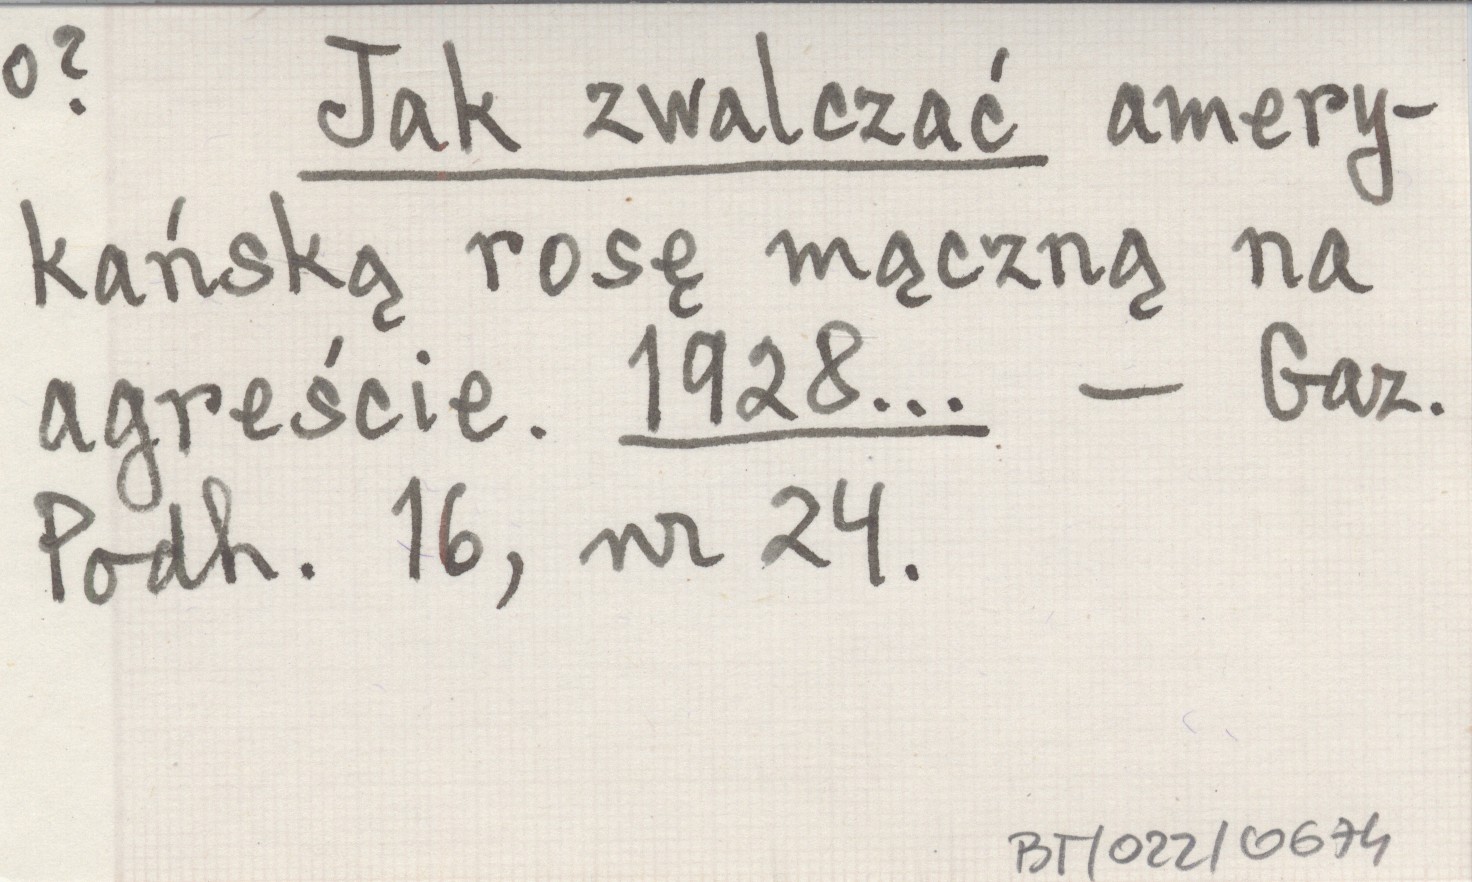 o?
Jak zwalczać amery-
kańską rosę mączną na
agreście. 1928... — Gaz.
Podh. 16, nr 24.
BT/022/0674